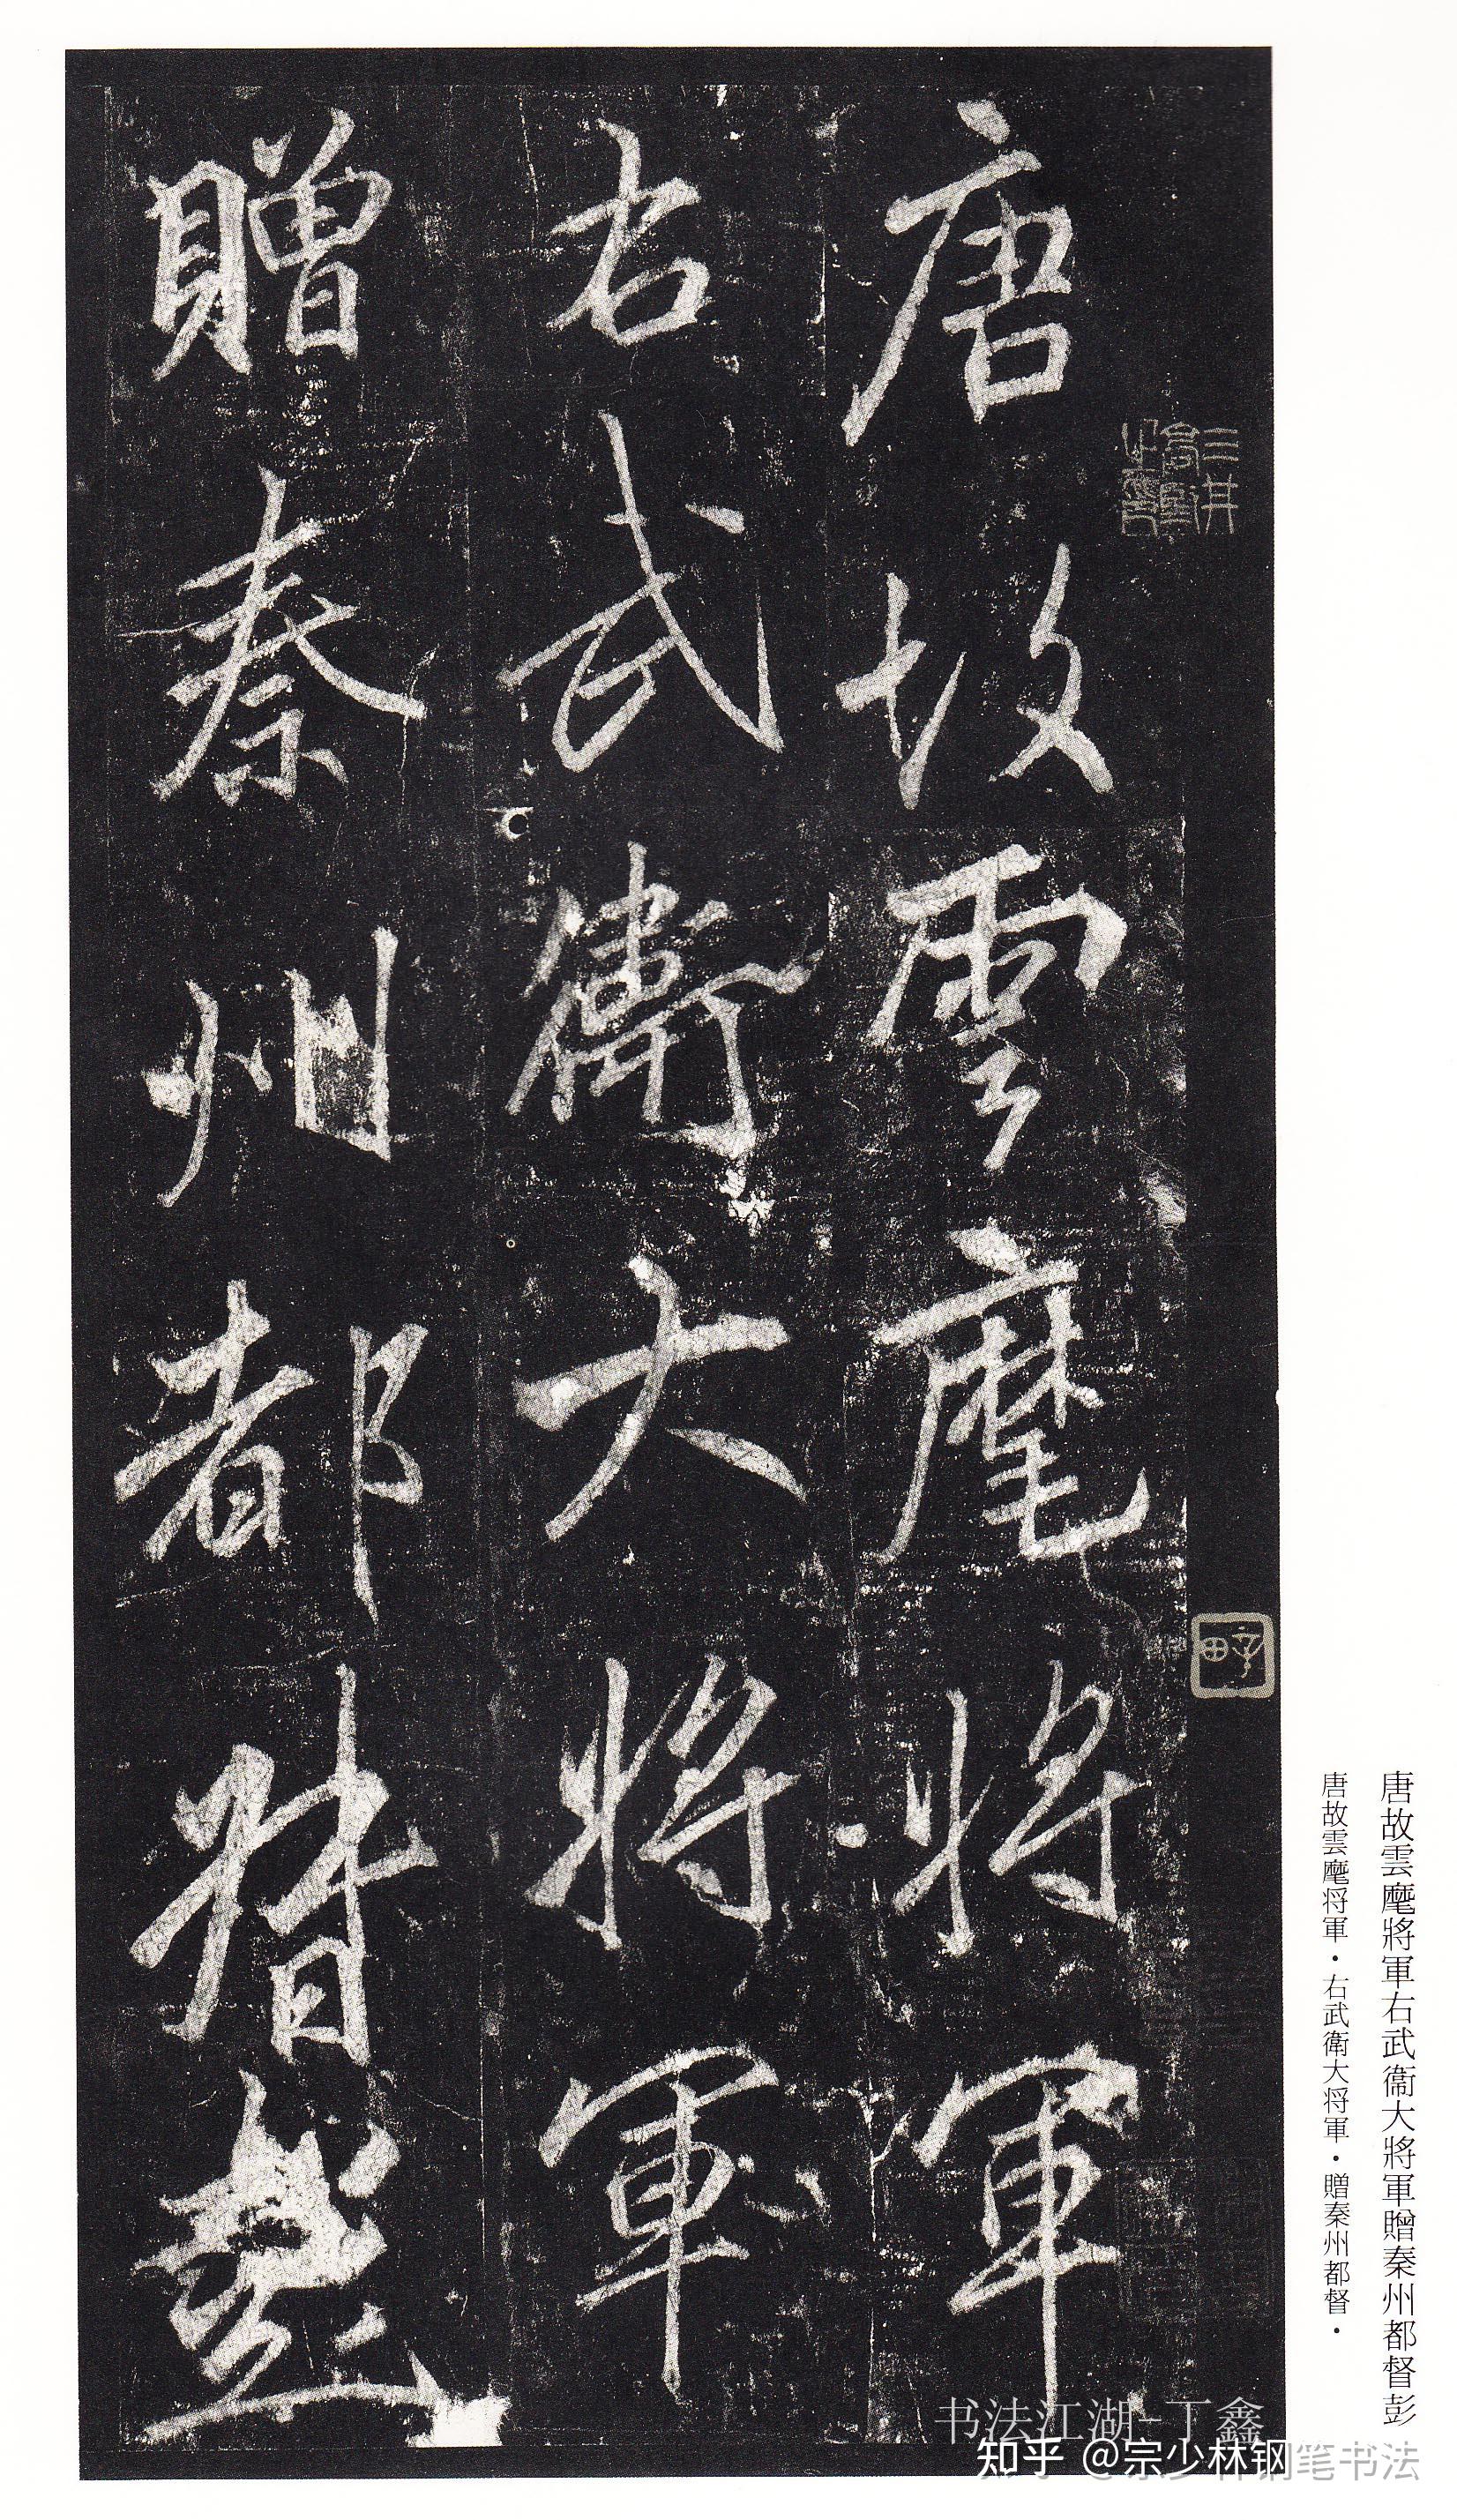 唐故雲麾將軍
右武衛大將軍
贈秦州都督彭
唐故雲麾將軍右武衞大將軍贈秦州都督彭
唐故雲麾将軍・右武衛大将軍・贈秦州都督・
书法江湖-丁鑫
知乎 @宗少林钢笔书法